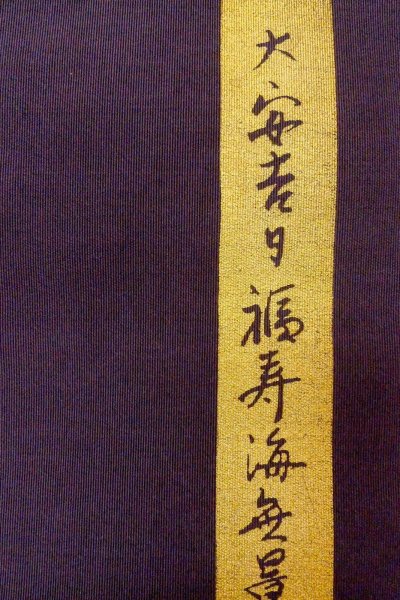 大安吉日福寿海無量